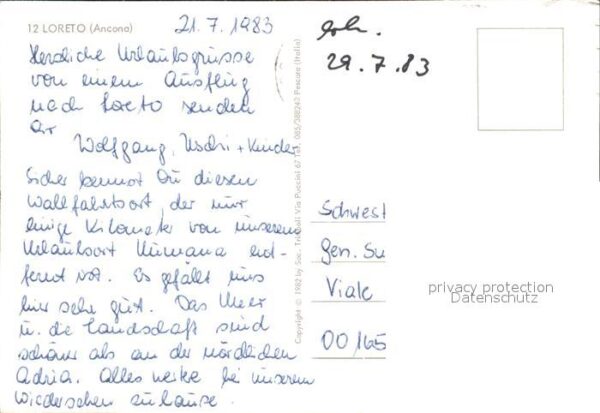 12 LORETO (Ancona)
21.7.1983
Herzliche Urlaubsgrüsse
von einem Ausflug
nach Loreto senden
Dir
Wolfgang, Uschi + Kinder
Sicher kennst Du diesen
Wallfahrtsort, der nur
einige Kilometer von unserem
Urlaubsort Numana ent-
fernt ist. Es gefällt uns
hier sehr gut. Das Meer
u. die Landschaft sind
schöner als an der nördlichen
Adria. Alles weitere bei unserem
Wiedersehen zuhause.
29.7.83
Copyright © 1982 by Soc. Via Puccini 67 Tel. 085/388247 Pescara (Italia)
Schwest
Gen. Su
Viale
00165
privacy protection
Datenschutz